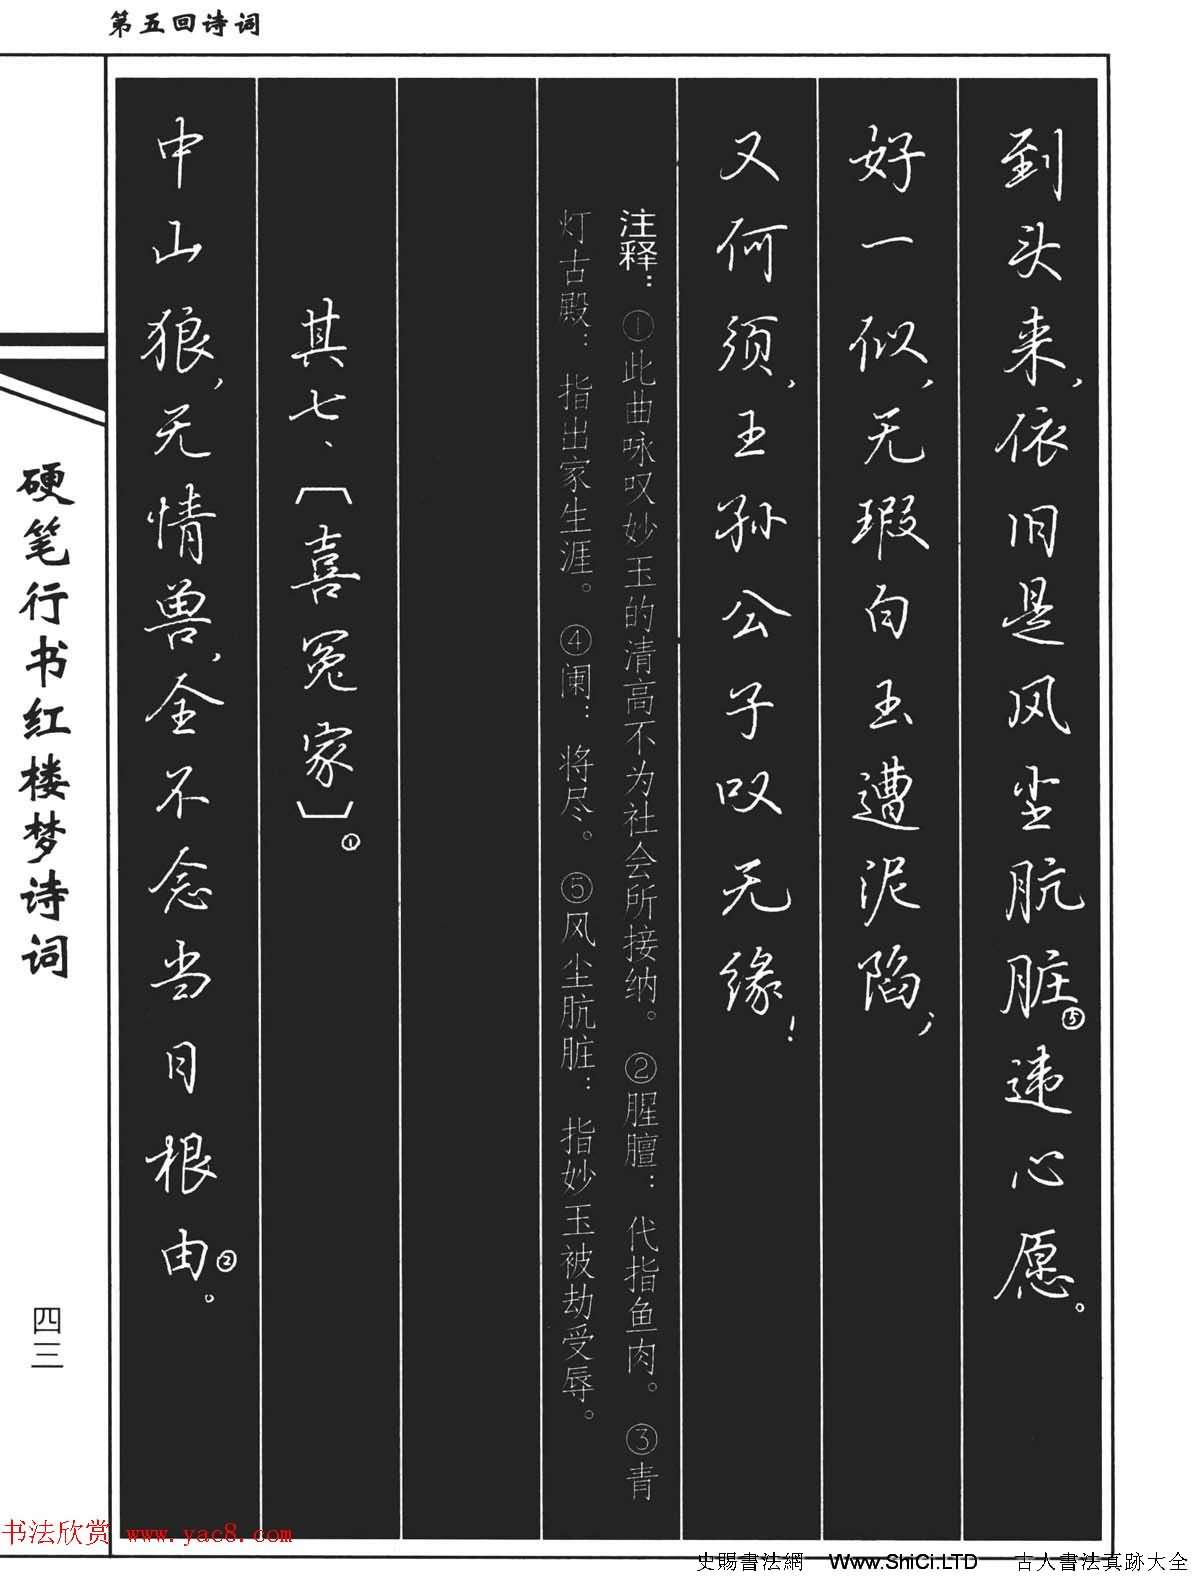 第五回诗词
到头来，依旧是风尘肮脏⑤违心愿。
好一似，无瑕白玉遭泥陷；
又何须，王孙公子叹无缘！
注释：①此曲咏叹妙玉的清高不为社会所接纳。②腥膻：代指鱼肉。③青
灯古殿：指出家生涯。④阑：将尽。⑤风尘肮脏：指妙玉被劫受辱。
其七、〔喜冤家〕①
中山狼，无情兽，全不念当日根由②。
硬笔行书红楼梦诗词
四三
书法欣赏 www.yac8.com
史賜書法網 Www.ShiCi.LTD 古人書法真跡大全